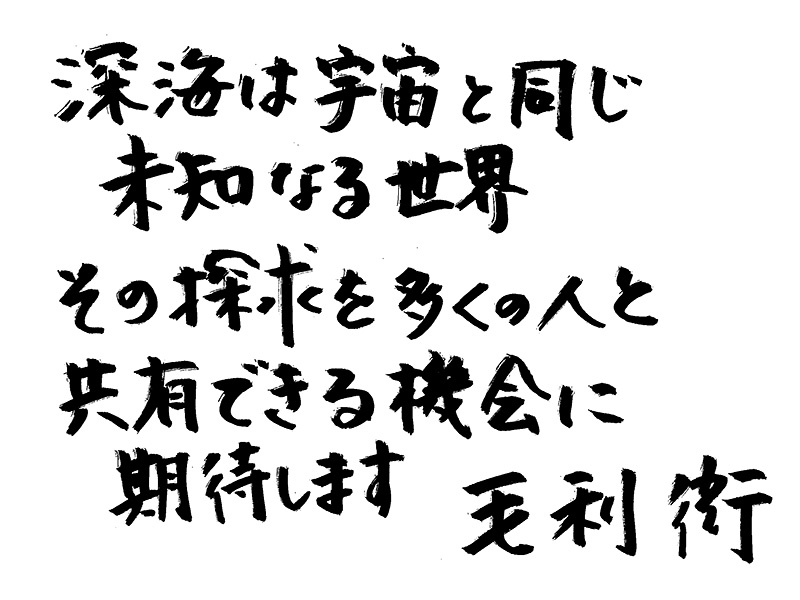 深海は宇宙と同じ
未知なる世界
その探求を多くの人と
共有できる機会に
期待します
毛利 衛